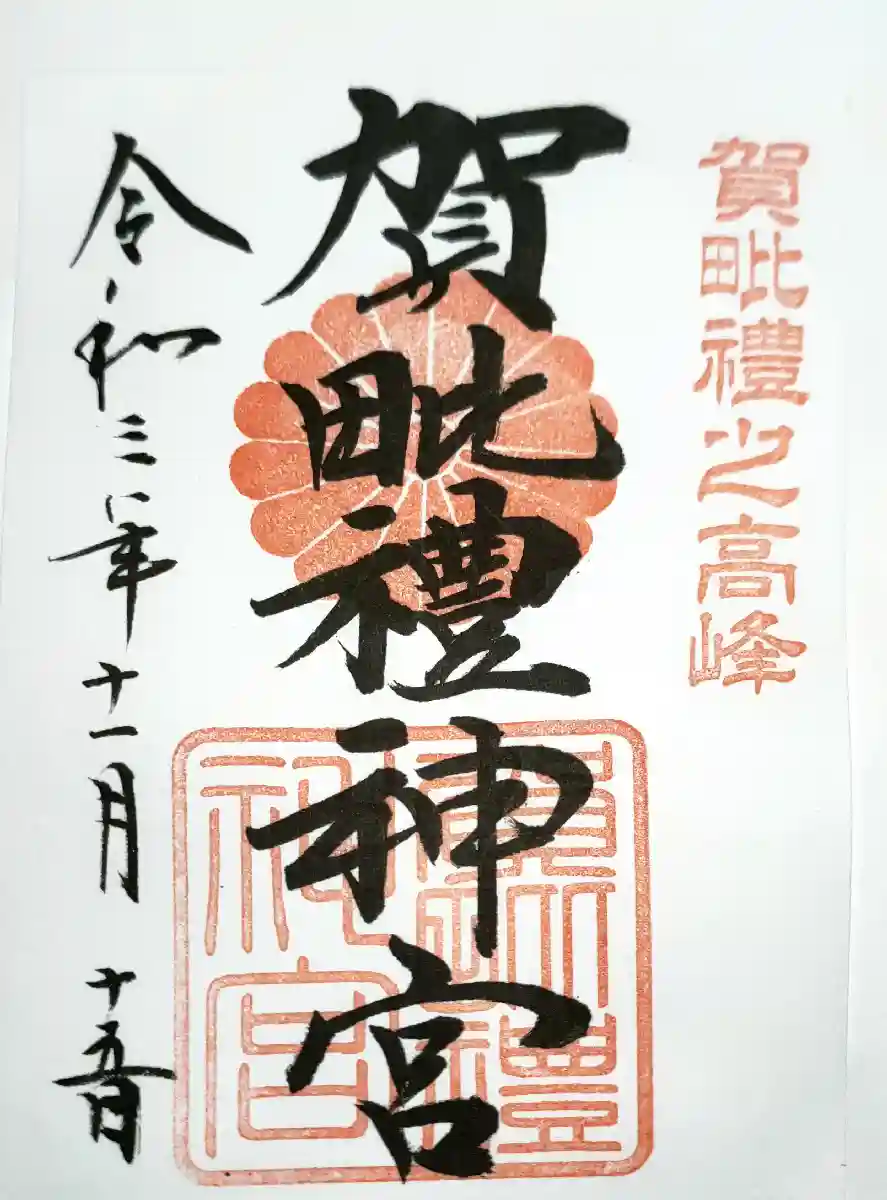 賀毗禮之高峰
賀毗禮神宮
令和三年十一月十五日